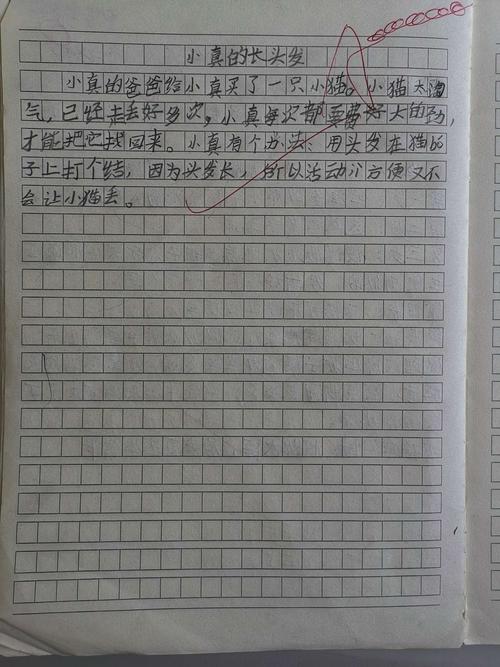 小真的长头发
小真的爸爸给小真买了一只小猫。小猫太淘
气,已经走丢好多次,小真每次都要费好大的劲,
才能把它找回来。小真有个办法:用头发在猫的
子上打个结,因为头发长,所以活动方便又不
会让小猫丢。